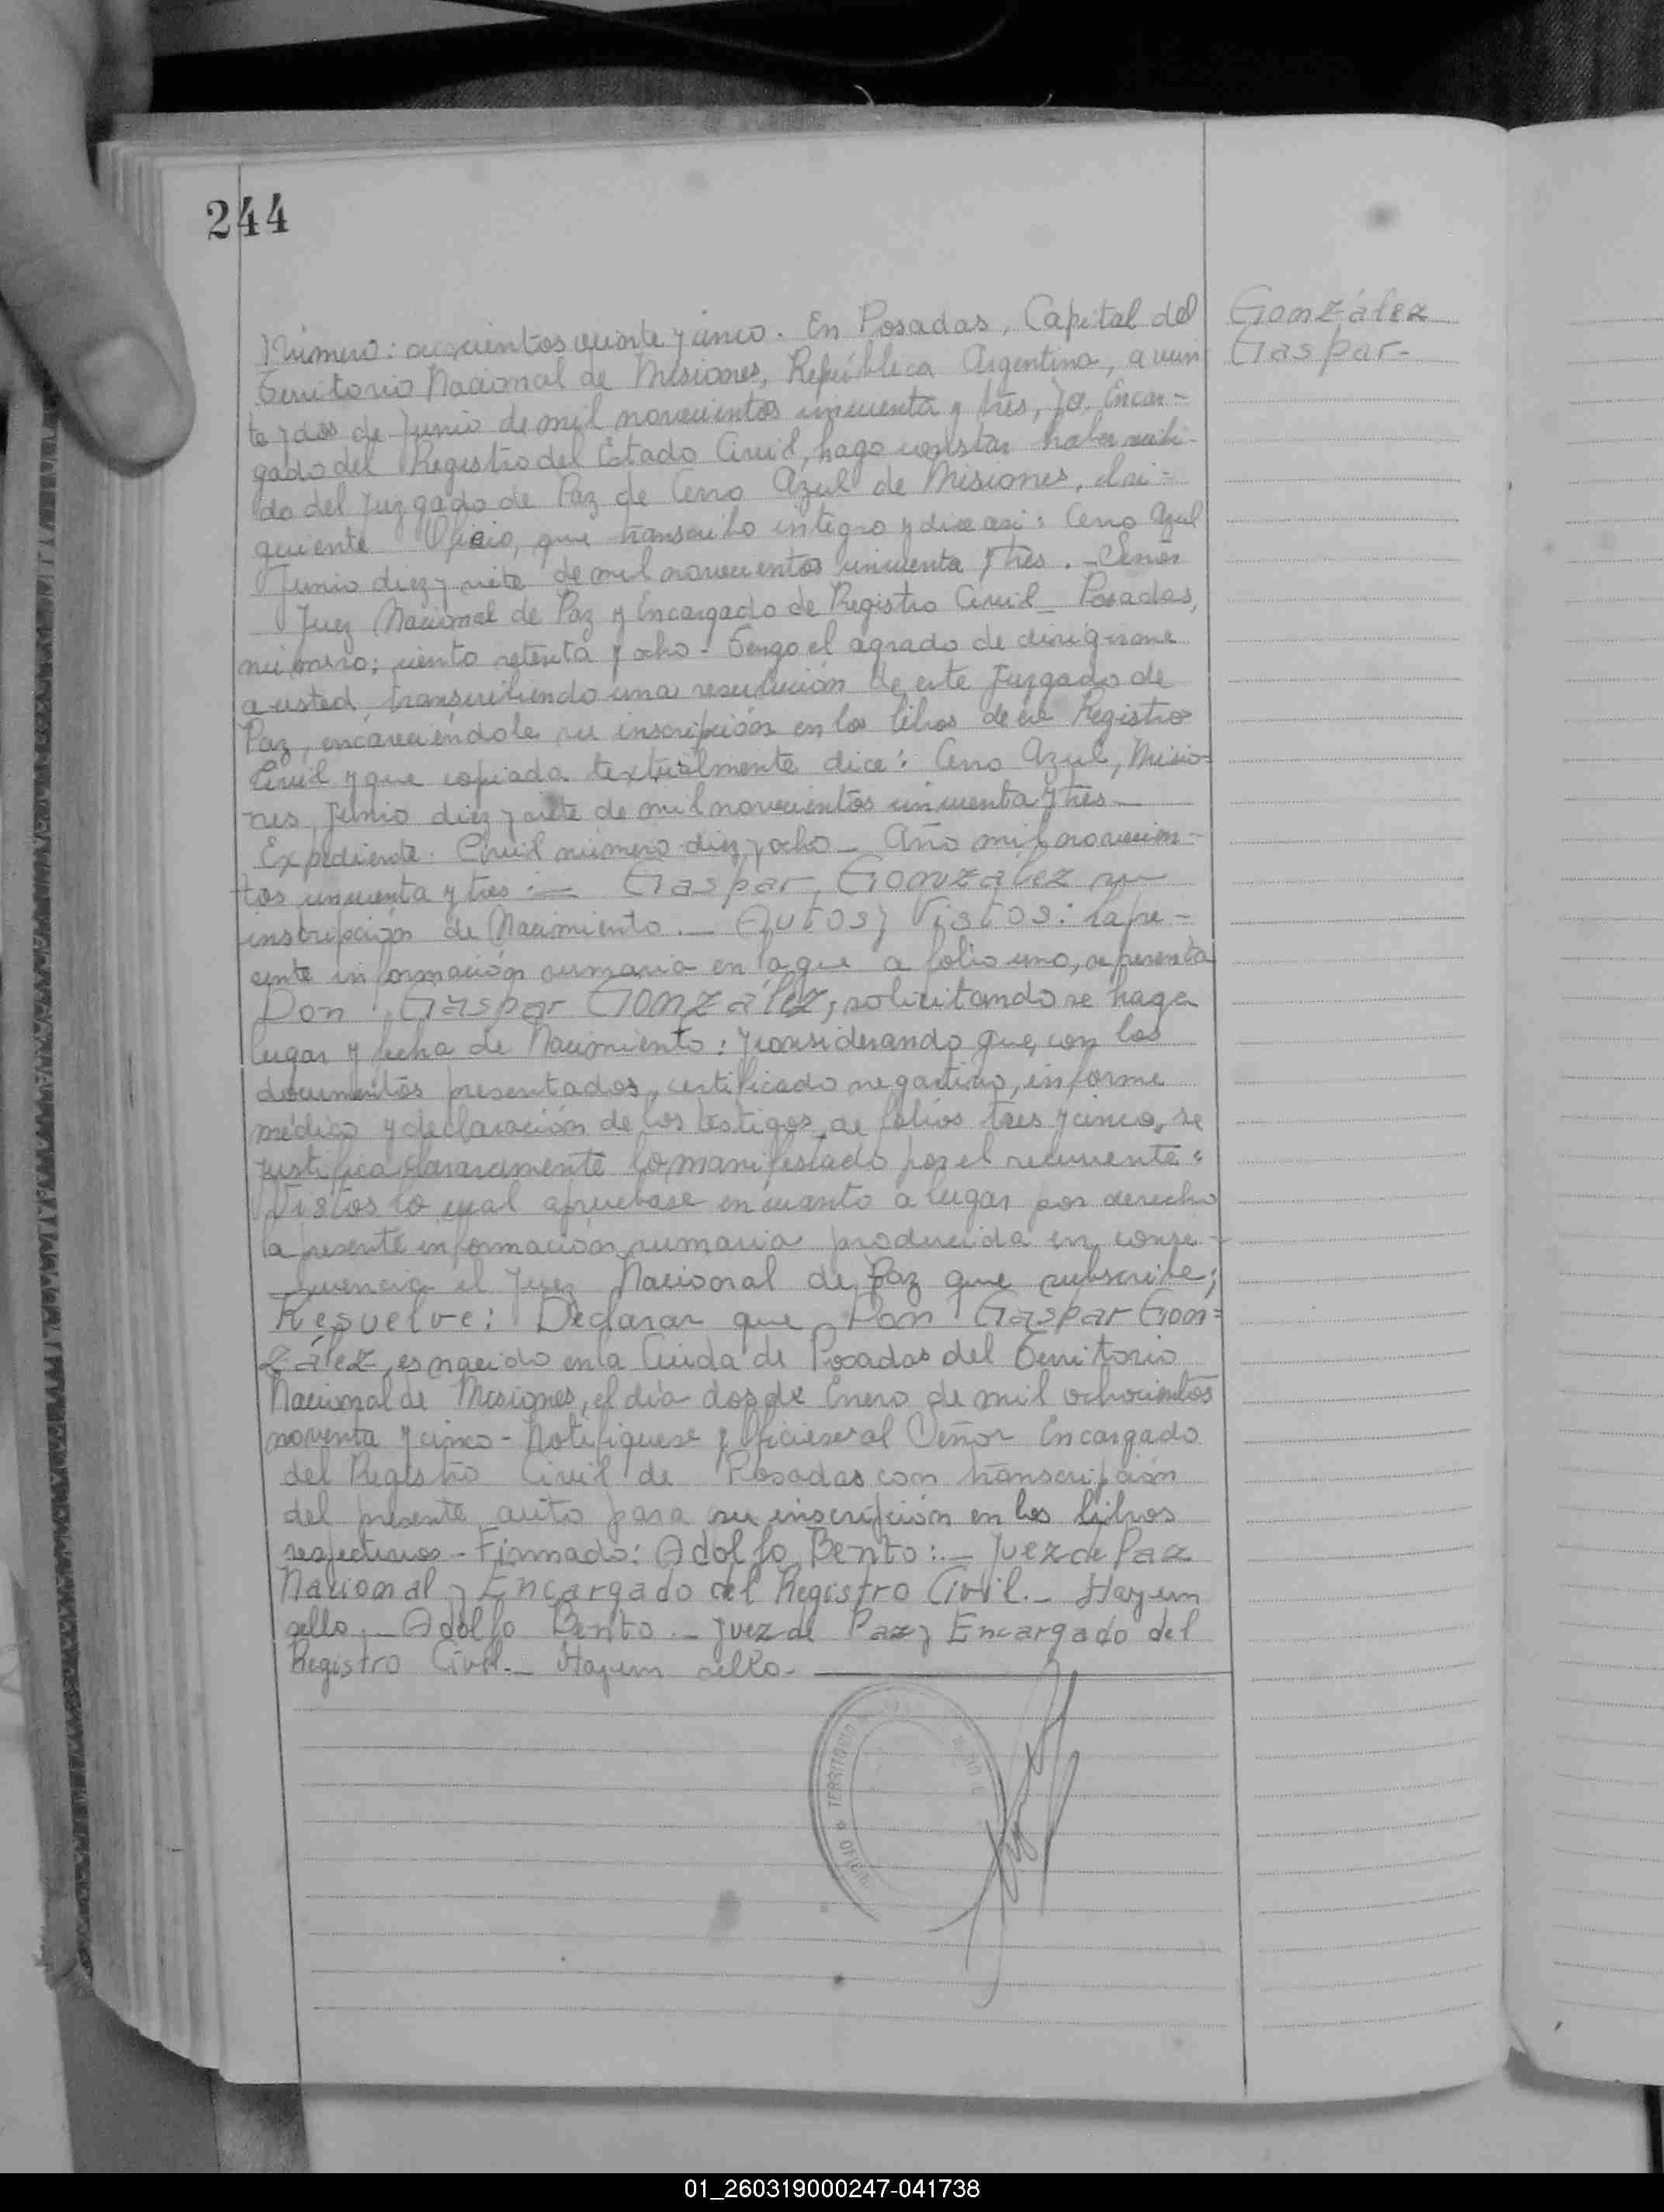 244
González
Gaspar-
Número: cuarenta y cinco. En Posadas, Capital del
Territorio Nacional de Misiones, República Argentina, a vein
te y dos de Junio de mil novecientos cincuenta y tres, Yo, Encar=
gado del Registro del Estado Civil, hago constar haber recibi-
do del Juzgado de Paz de Cerro Azul de Misiones, el si=
guiente Oficio, que transcribo integro y dice asi: Cerro Azul
Junio diez y siete de mil novecientos cincuenta y tres. - Señor
Juez Nacional de Paz y Encargado de Registro Civil - Posadas,
número; ciento setenta y ocho - Tengo el agrado de dirigirme
a usted, transcribiendo una resolución de este Juzgado de
Paz, encareciéndole su inscripción en los libros de ese Registro
Civil y que copiada textualmente dice: Cerro Azul, Misio=
nes, Junio diez y siete de mil novecientos cincuenta y tres -
Expediente Civil número diez y ocho - Año mil novecien=
tos cincuenta y tres: — Gaspar González su
inscripción de Nacimiento. — Autos y Vistos: la pre=
sente información sumaria en la que a folio uno, se presenta
Don Gaspar González, solicitando se haga
lugar y fecha de Nacimiento: y considerando que, con los
documentos presentados, certificado negativo, informe
médico y declaración de los testigos de folios tres y cinco, se
justifica claramente lo manifestado por el recurrente:
Vistos lo cual apruebase en cuanto a lugar por derecho
la presente información sumaria producida en conse-
cuencia el Juez Nacional de Paz que subscribe;
Resuelve: Declarar que Don Gaspar Gon=
zález, es nacido en la Ciuda de Posadas del Territorio
Nacional de Misiones, el día dos de Enero de mil ochocientos
noventa y cinco - Notifiquese y Oficiese al Señor Encargado
del Registro Civil de Posadas con transcripción
del presente auto para su inscripción en los libros
respectivos - Firmado: Adolfo Bento: - Juez de Paz
Nacional y Encargado del Registro Civil. - Hay un
sello. - Adolfo Bento. - Juez de Paz y Encargado del
Registro Civil. - Hay un sello. -
TERRITORIO
OFICINA
01_260319000247-041738